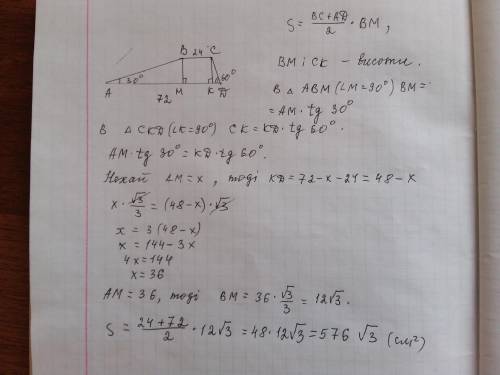 S = (BC+AD)/2 · BM,
B 24 C
30° 60°
A M K D
72
BM i CK – висоти.
В △ ABM (∠M=90°) BM=
= AM · tg 30°
В △ CKD (∠K=90°) CK=KD · tg 60°.
AM · tg 30° = KD · tg 60°.
Нехай AM = x, тоді KD = 72 - x - 24 = 48 - x
x · √3/3 = (48 - x) · √3
x = 3 (48 - x)
x = 144 - 3x
4x = 144
x = 36
AM = 36, тоді BM = 36 · √3/3 = 12√3.
S = (24 + 72)/2 · 12√3 = 48 · 12√3 = 576 √3 (см²)